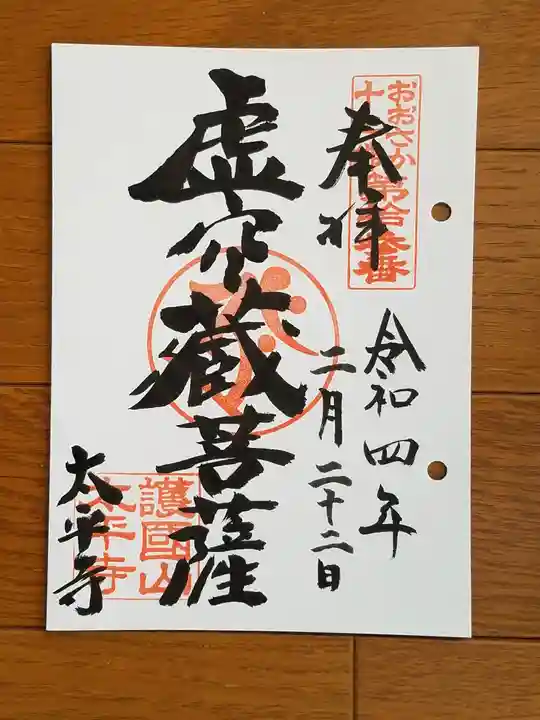 奉拝
おおさか
十三佛第拾参番
令和四年
二月二十二日
虚空藏菩薩
護國山
太平寺
太平寺